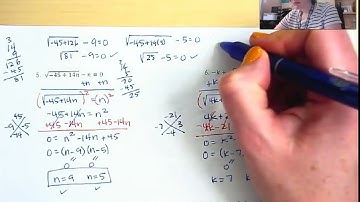 3
14
9
126
-45
81
√-45+126 - 9=0
√81 - 9=0 ✓
√-45+14(5) - 5=0
√25 - 5=0 ✓
5. √-45+14n - n = 0
+n +n
(√-45+14n)² = (n)²
-45+14n = n²
+45-14n +45-14n
0 = n² - 14n + 45
0 = (n-9)(n-5)
n=9 n=5
✓ ✓
45
-9 -5
-14
70
-45
25
6.
0 = (k-7)
k=7
-21
-7 3
-4